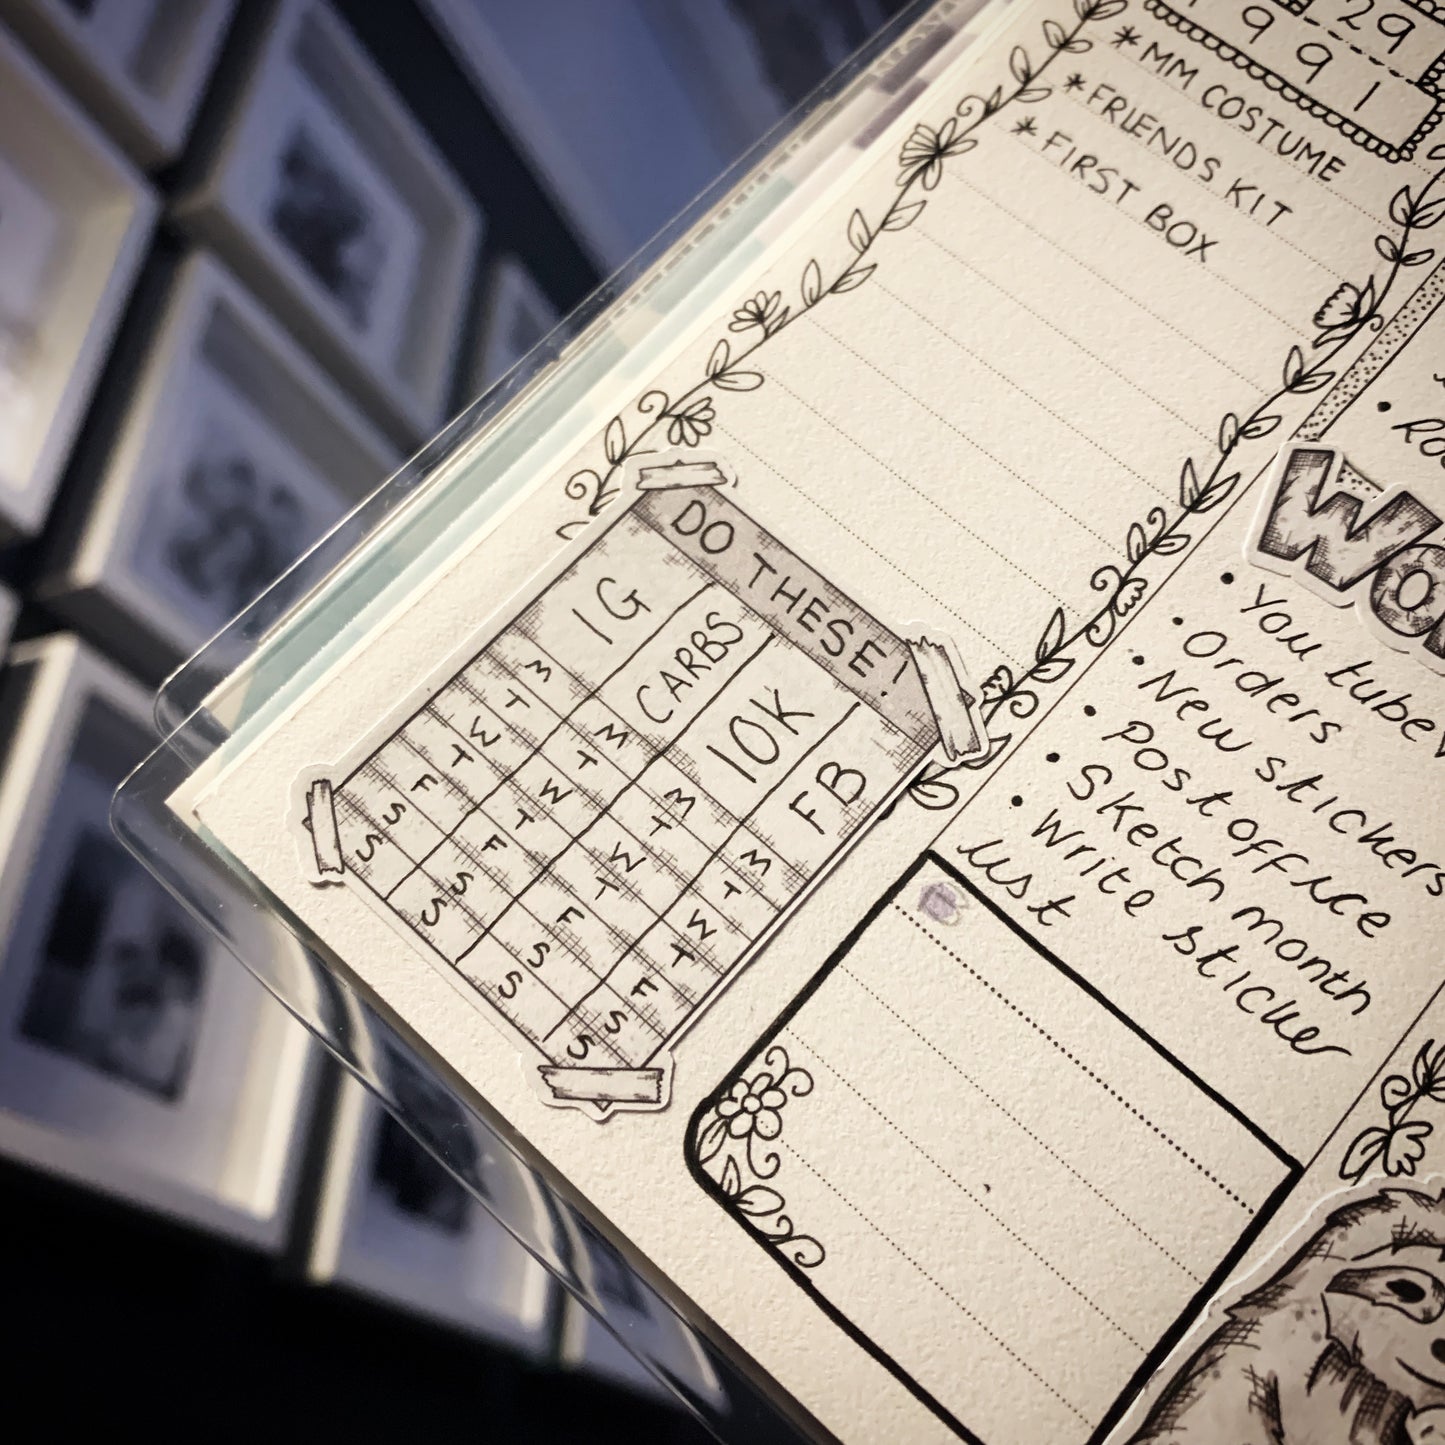 29
9 9 1
*MM COSTUME
*FRIENDS KIT
*FIRST BOX
DO THESE!
IG
M T W T F S S
CARBS
M T W T F S S
10K
M T W T F S S
FB
M T W T F S S
• You tube
• Orders
• New stickers
• Post office
• Sketch month
• Write sticker
list